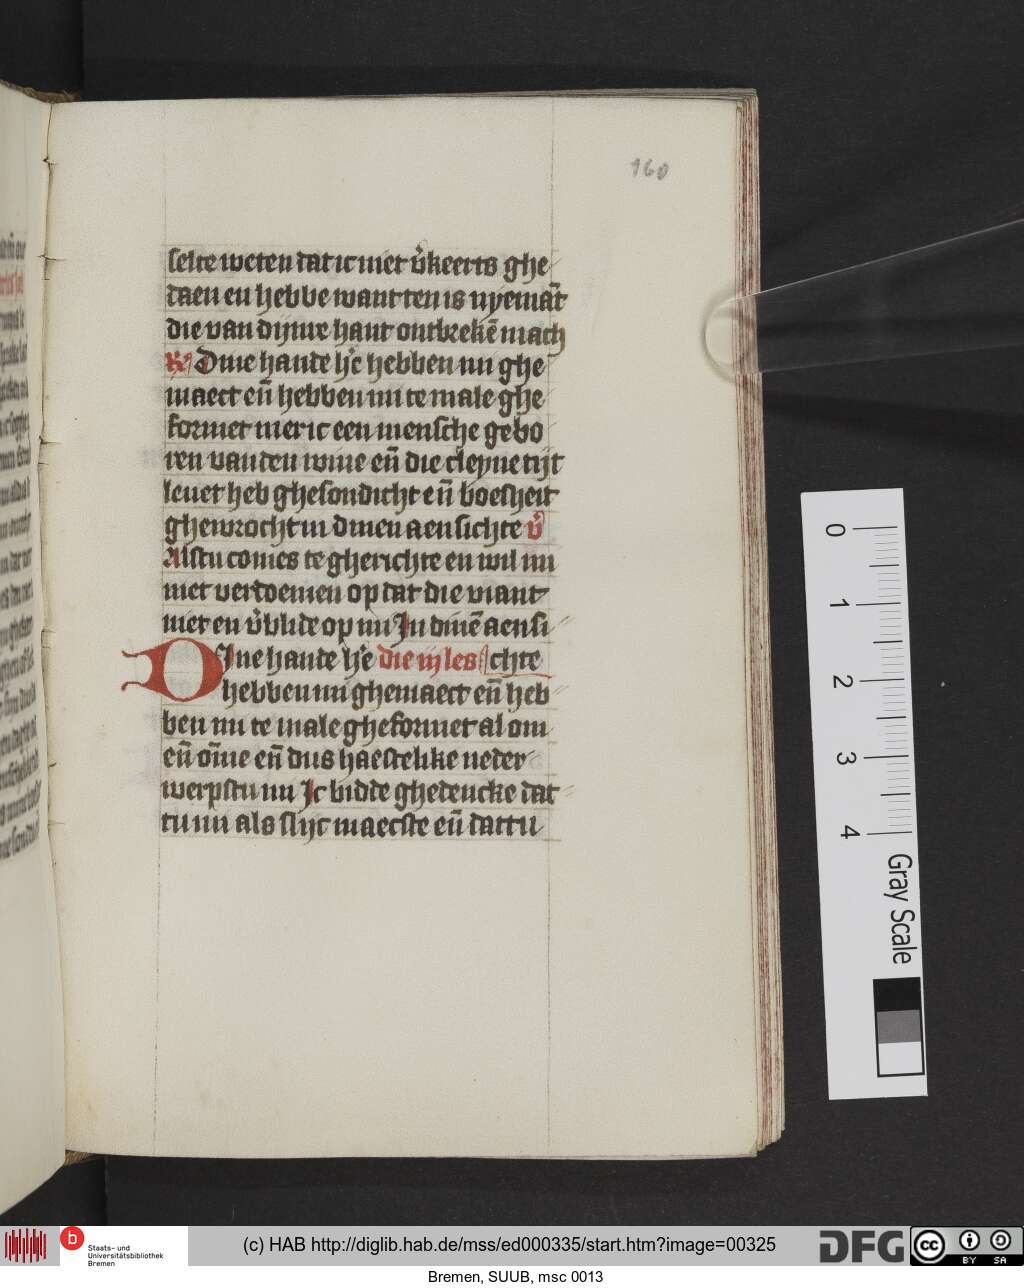 160
selte weten dat ic niet v̉keerts ghe
daen en hebbe want ten is nyemāt
die van dijnre hant ontbrekē mach
R Dine hande hr̄e hebben mi ghe
maect en̄ hebben mi te male ghe
formet mer ic een mensche gebo
ren van den wiue en̄ die cleyne tijt
leuet heb ghesondicht en̄ boesheit
ghewrocht in dinen aensichte v̉
Alstu comes te gherichte en wil mi
niet verdoemen op dat die viant
niet en v̉blide op mi In dinē aensi
DIne hande hr̄e die iij les chte
hebben mi ghemaect en̄ heb
ben mi te male gheformet al om
en̄ om̄e en̄ dus haestelike neder
werpstu mi Ic bidde ghedencke dat
tu mi als slijc maecste en̄ dattu
0
1
2
3
4
Gray Scale
b
Staats- und
Universitätsbibliothek
Bremen
(c) HAB http://diglib.hab.de/mss/ed000335/start.htm?image=00325
DFG
cc
BY SA
Bremen, SUUB, msc 0013